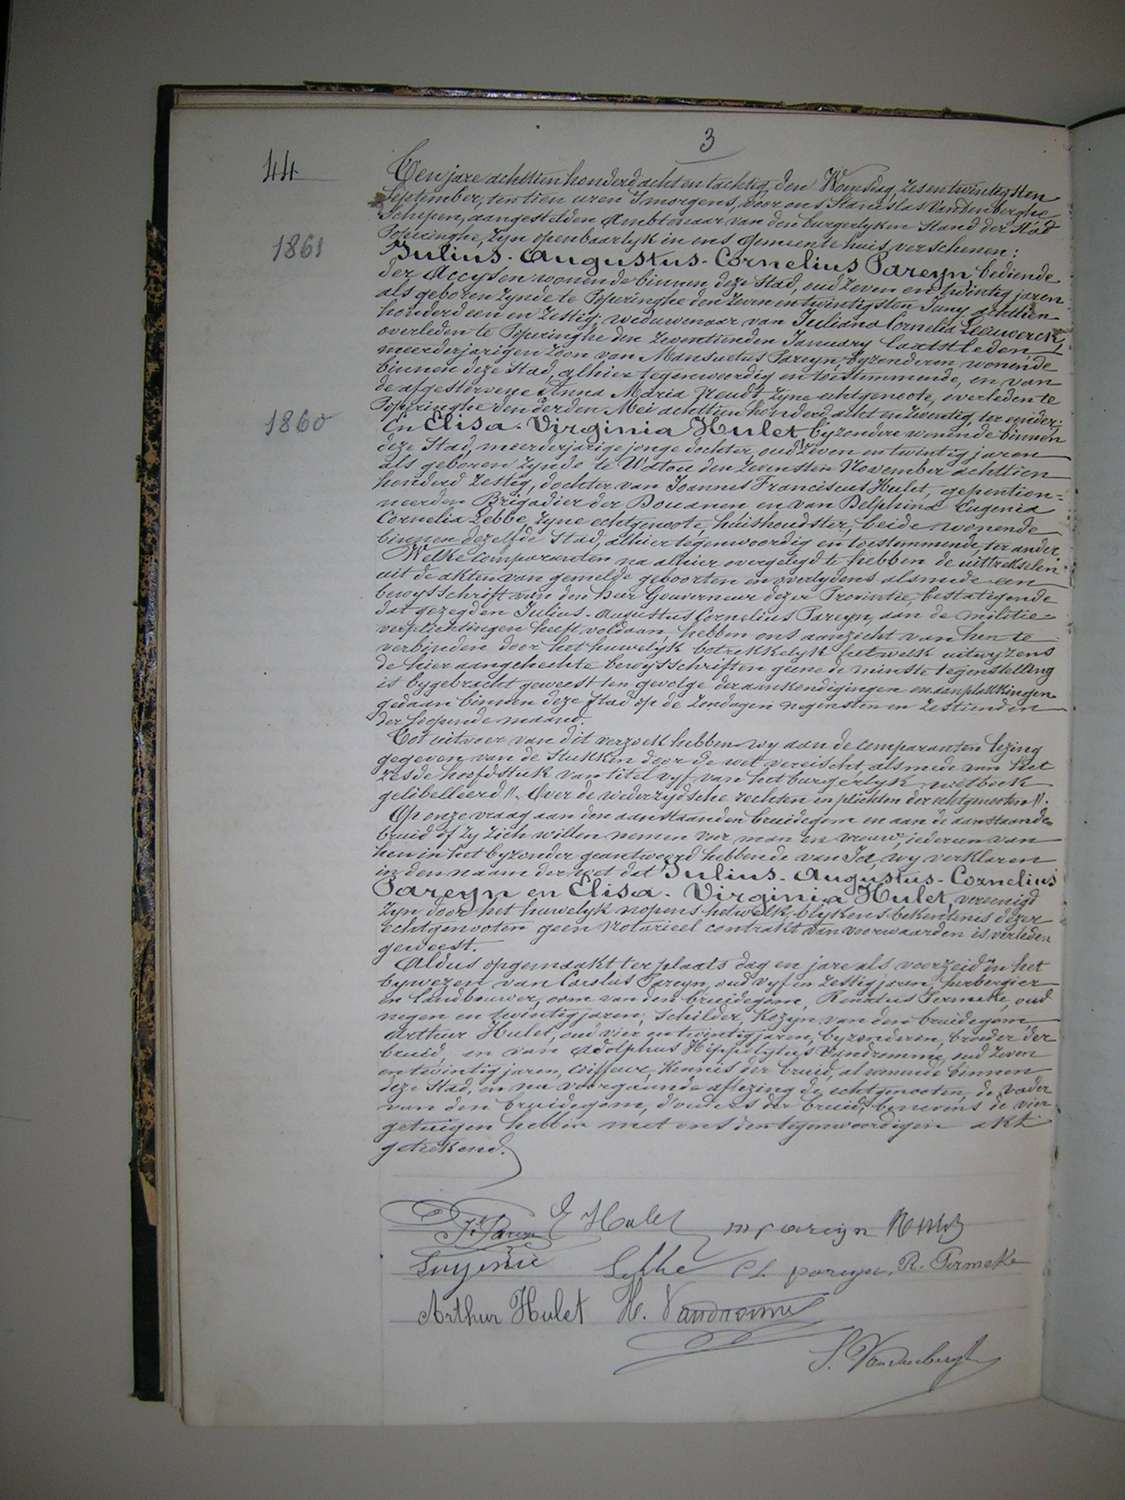 3
44
Een jare achttien honderd acht en tachtig, den Woensdag, zesentwintigsten
September, ten tien uren 's morgens, voor ons Stanislas Vandenberghe
Schepen, aangestelden Ambtenaar van den burgerlyken Stand der Stad
Poperinghe, zyn openbaarlyk in ons gemeentehuis verschenen:
1861
Julius-Augustus-Cornelius Pareyn, bediende
der Accysen wonende binnen deze Stad, oud zeven en twintig jaren
als geboren zynde te Poperinghe den zeven en twintigsten Juny achttien
honderd een en zestig, weduwenaar van Juliana Cornelia Leeuwerck,
overleden te Poperinghe den zeventienden January laatstleden,
meerderjarigen zoon van Mansuetus Pareyn, byzonderen, wonende
binnen deze Stad, alhier tegenwoordig en toestemmende, en van
de afgestorvene Anna Maria Feudt, zyne echtgenoote, overleden te
Poperinghe den derden Mei achttien honderd acht en zeventig, ter eender;
1860
En Elisa-Virginia Hulet, byzondere wonende binnen
deze Stad, meerderjarige jonge dochter, oud zeven en twintig jaren
als geboren zynde te Watou den zevensten November achttien
honderd zestig, dochter van Joannes Franciscus Hulet, gepention-
neerden Brigadier der Douanen en van Delphina Eugenia
Cornelia Lebbe, zyne echtgenoote, huishoudster, beide wonende
binnen dezelfde Stad, alhier tegenwoordig en toestemmende, ter ander.
Welke comparanten na alhier overgelegd te hebben de uittrekselen
uit de akten van gemelde geboorten en overlydens alsmede een
bewysschrift van den heer Gouverneur dezer Provintie, bestatigende
dat gezegden Julius-Augustus Cornelius Pareyn, aan de militie
verplichtingen heeft voldaan, hebben ons aanzicht van hen te
verbinden door het huwelyk betrekkelyk hetwelk uitwyzens
de hier aangehechte bewysschriften geene de minste tegenstelling
is bygebracht geweest ten gevolge der aankondigingen en aanplakkingen
gedaan binnen deze Stad op de Zondagen negensten en zestienden
der loopende maand.
Tot uitvoer van dit verzoek hebben wy aan de comparanten lezing
gegeven van de stukken door de wet vereischt alsmede van het
zesde hoofdstuk van titel vyf van het burgerlyk wetboek
gelibelleerd "Over de wederzydsche rechten en plichten der echtgenooten".
Op onze vraag aan den aanstaanden bruidegom en aan de aanstaande
bruid of zy zich willen nemen voor man en vrouw, iedereen van
hen in het byzonder geantwoord hebbende van Ja, wy verklaren
in den naam der wet dat Julius-Augustus-Cornelius
Pareyn en Elisa-Virginia Hulet, vereenigd
zyn door het huwelyk nopens hetwelk, blykens bekentenis dezer
echtgenooten geen notarieel contrakt van voorwaarden is verleden
geweest.
Aldus opgemaakt ter plaats dag en jare als voorzeid in het
bywezen van Carolus Pareyn, oud vyf en zestig jaren, herbergier
en landbouwer, oom van den bruidegom, Renatus Permeke, oud
negen en twintig jaren, schilder, kozyn van den bruidegom
Arthur Hulet, oud vier en twintig jaren, byzonderen, broeder der
bruid, en van Adolphus Hippolytus Vandromme, oud zeven
en twintig jaren, coiffeur, kennis der bruid, al wonende binnen
deze Stad, en na voorgaande aflezing de echtgenooten, de vader
van den bruidegom, d'ouders der bruid, benevens de vier
getuigen hebben met ons den tegenwoordigen akt
geteekend.
J. Pareyn E Hulet m pareyn Hulet
Eugenie Lebbe Ch pareyn R. Permeke
Arthur Hulet H. Vandromme
S. Vandenberghe